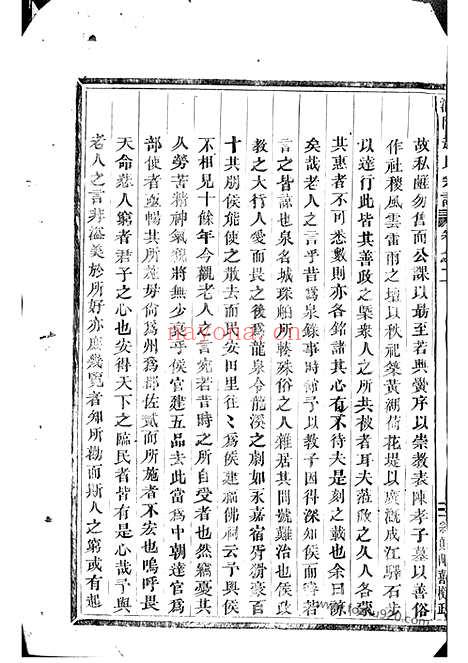 故私鹺勿售而公課以最至若興黌序以崇教表陳孝子墓以善俗
作社稷風雲雷雨之壇以秋祀築黃湖荷花堤以廣漑成江驛石步
以達行此皆其善政之犖衆人之所共被者耳夫蒞政之久人各蒙
其惠者不可悉數則亦各銘諸其心有不待夫是刻之載也余曰諒
矣哉老人之言乎昔爲泉錄事時餙予以教子因得深知侯而言
言之皆諒也泉名城琛舶所輳殊俗之人雜居其間號難治也侯政
教之大行人遊畏之後爲龍泉令龍溪之劇如永嘉宿猾斂
十其朋侯能使之散去而以安田里往〻爲侯建祠佛祠云予與侯
不相見十餘年今觀老人之言宛若昔時之所自受者也然竊憂其
人勞苦精神氣貌將無少衰乎侯官建五品去此當爲中朝達官爲
部使者遂暢其所施毋尚爲州爲郡佐貳而所施者不也嗚呼畏
天命悲人窮者君子之心也安得天下之臨民者皆有是哉予與
老人之言非溢美於所好亦庶幾覽者知所勸而斯人之窮或有起
卷之二
nayona.cn